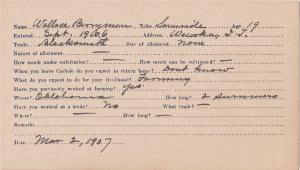 Name, Wallace Berryman Tribe Seminole Age, 19
Entered, Sept. 1906 Address, Wewoka, I. T.
Trade, Blacksmith Size of allotment, None
Nature of allotment, —
How much under cultivation? — How much can be cultivated? —
When you leave Carlisle do you expect to return home? Dont know
What do you expect to do for your livelihood? Farming
Have you previously worked at farming? Yes
Where? Oklahoma How long? 2 summers
Have you worked at a trade? No What trade? —
Where? — How long? —
Remarks,
Date, Mar 2, 1907